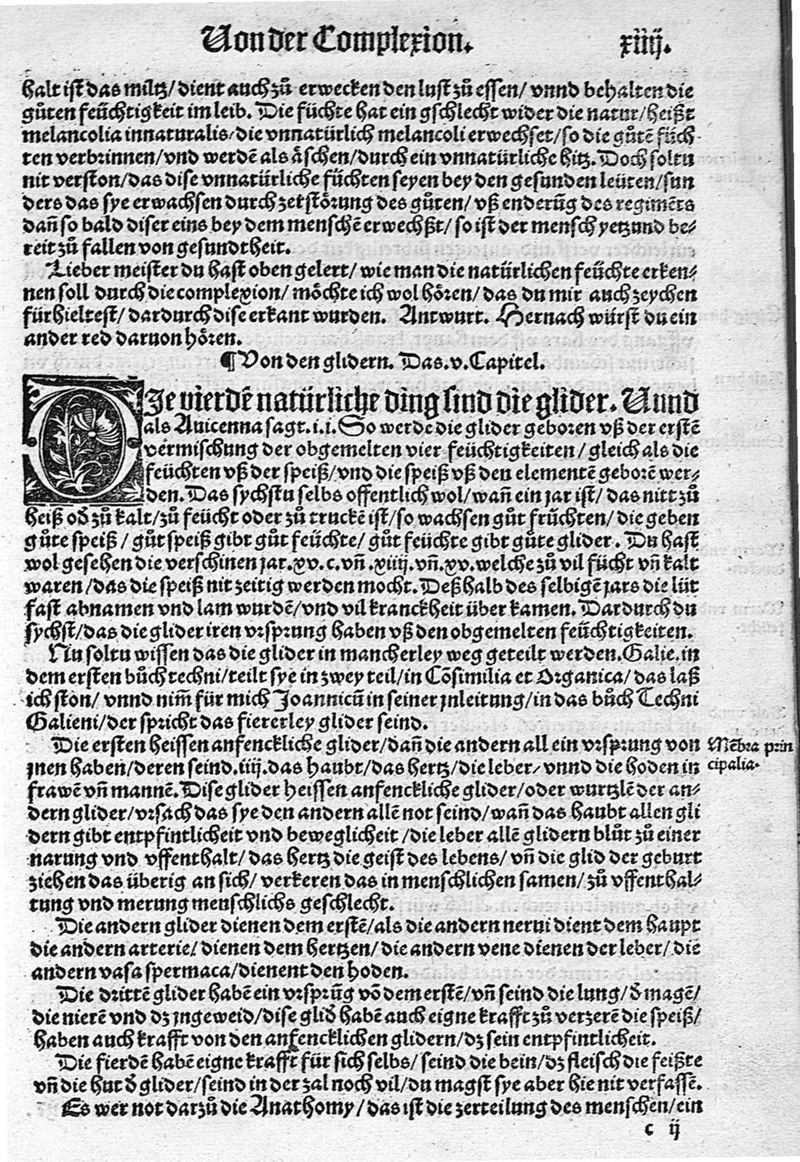 Von der Complexion. xiiij.
halt ist das miltz/ dient auch zů erwecken den lust zů essen/ vnnd behalten die
gůten feüchtigkeit im leib. Die füchte hat ein gschlecht wider die natur/ heißt
melancolia innaturalis/ die vnnatürlich melancoli erwechset/ so die gůtē füch
ten verbrinnen/ vnd werdē als åschen/ durch ein vnnatürliche hitz. Doch soltu
nit verston/ das dise vnnatürliche füchten seyen bey den gesunden leüten/ sun
ders das sye erwachsen durch zerstörung des gůten/ vß enderūg des regimēts
dañ so bald diser eins bey dem menschē erwechßt/ so ist der mensch yetzund be-
reit zů fallen von gesundtheit.
Lieber meister du hast oben gelert/ wie man die natürlichen feüchte erken-
nen soll durch die complexion/ möchte ich wol hören/ das du mir auch zeychen
fürhieltest/ dardurch dise erkant wurden. Antwurt. Hernach würst du ein
ander red daruon hören.
¶Von den glidern. Das .v. Capitel.
DJe vierdē natürliche ding sind die glider. Vnnd
als Auicenna sagt .i.i. So werdē die glider geboren vß der erstē
vermischung der obgemelten vier feüchtigkeiten/ gleich als die
feüchten vß der speiß/ vnd die speiß vß den elementē geborē wer-
den. Das sychstu selbs offentlich wol/ wañ ein jar ist/ das nitt zů
heiß oď zů kalt/ zů feücht oder zů truckē ist/ so wachsen gůt frůchten/ die geben
gůte speiß/ gůt speiß gibt gůt feüchte/ gůt feüchte gibt gůte glider. Du hast
wol gesehen die verschinen jar .xv. c. vñ .xiiij. vñ .xv. welche zů vil fücht vñ kalt
waren/ das die speiß nit zeitig werden mocht. Deßhalb des selbigē jars die lüt
fast abnamen vnd lam wurdē/ vnd vil kranckheit über kamen. Dardurch du
sychst/ das die glider iren vrsprung haben vß den obgemelten feüchtigkeiten.
Nu soltu wissen das die glider in mancherley weg geteilt werden. Galie. in
dem ersten bůch techni/ teilt sye in zwey teil/ in Cōsimilia et Organica/ das laß
ich ston/ vnnd nim̄ für mich Joannicū in seiner jnleitung/ in das bůch Techni
Galieni/ der spricht das fiererley glider seind.
Die ersten heissen anfenckliche glider/ dañ die andern all ein vrsprung von
jnen haben/ deren seind .iiij. das haubt/ das hertz/ die leber/ vnnd die hoden in
frawē vñ mannē. Dise glider heissen anfenckliche glider/ oder wurtzlē der an-
dern glider/ vrsach das sye den andern allē not seind/ wañ das haubt allen gli
dern gibt entpfintlicheit vnd beweglicheit/ die leber allē glidern blůt zů einer
narung vnd vffenthalt/ das hertz die geist des lebens/ vñ die glid der geburt
ziehen das überig an sich/ verkeren das in menschlichen samen/ zů vffenthal-
tung vnd merung menschlichs geschlecht.
Mēbra prin
cipalia.
Die andern glider dienen dem erstē/ als die andern nerui dient dem haupt
die andern arterie/ dienen dem hertzen/ die andern vene dienen der leber/ die
andern vasa spermaca/ dienent den hoden.
Die drittē glider habē ein vrsprūg vō dem erstē/ vñ seind die lung/ ď magē/
die nieren vnd dz jngeweid/ dise gliď habē auch eigne krafft zů verzerē die speiß/
haben auch krafft von den anfencklichen glidern/ dz sein entpfintlicheit.
Die fierdē habē eigne krafft für sich selbs/ seind die bein/ dz fleisch die feißte
vñ die hut ď glider/ seind in der zal noch vil/ du magst sye aber hie nit verfassē.
Es wer not darzů die Anathomy/ das ist die zerteilung des menschen/ ein
c ij